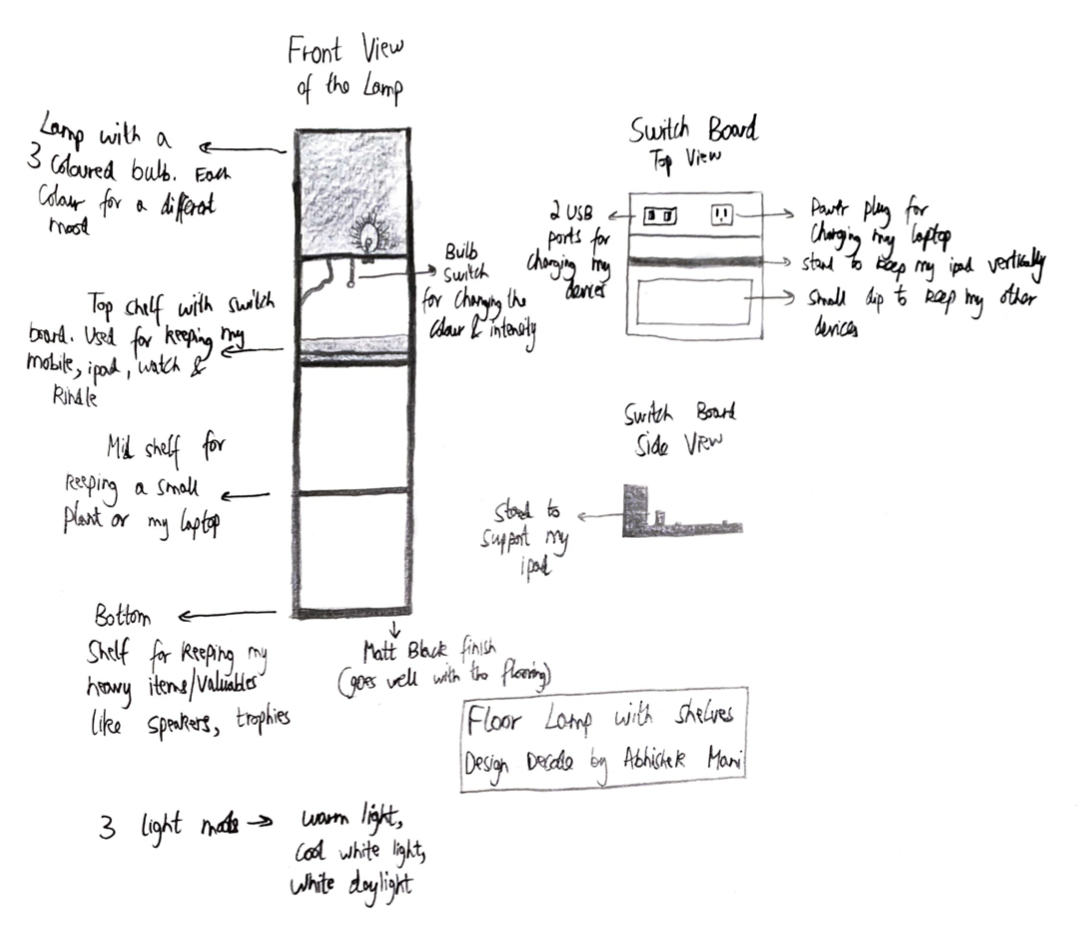 Front View
of the Lamp
Lamp with a
3 coloured bulb. Each
colour for a different
mood
Bulb
switch
for changing the
colour & intensity
Top shelf with switch
board. Used for keeping my
mobile, ipad, watch &
Kindle
Mid shelf for
keeping a small
plant or my laptop
Bottom
shelf for keeping my
heavy items/valuables
like speakers, trophies
Matt Black finish
(goes well with the flooring)
Switch Board
Top View
2 USB
ports for
charging my
devices
Power plug for
charging my laptop
stand to keep my ipad vertically
small dip to keep my other
devices
Switch Board
Side View
stand to
support my
ipad
Floor Lamp with shelves
Design Decode by Abhishek Mani
3 light mode → warm light,
cool white light,
white daylight